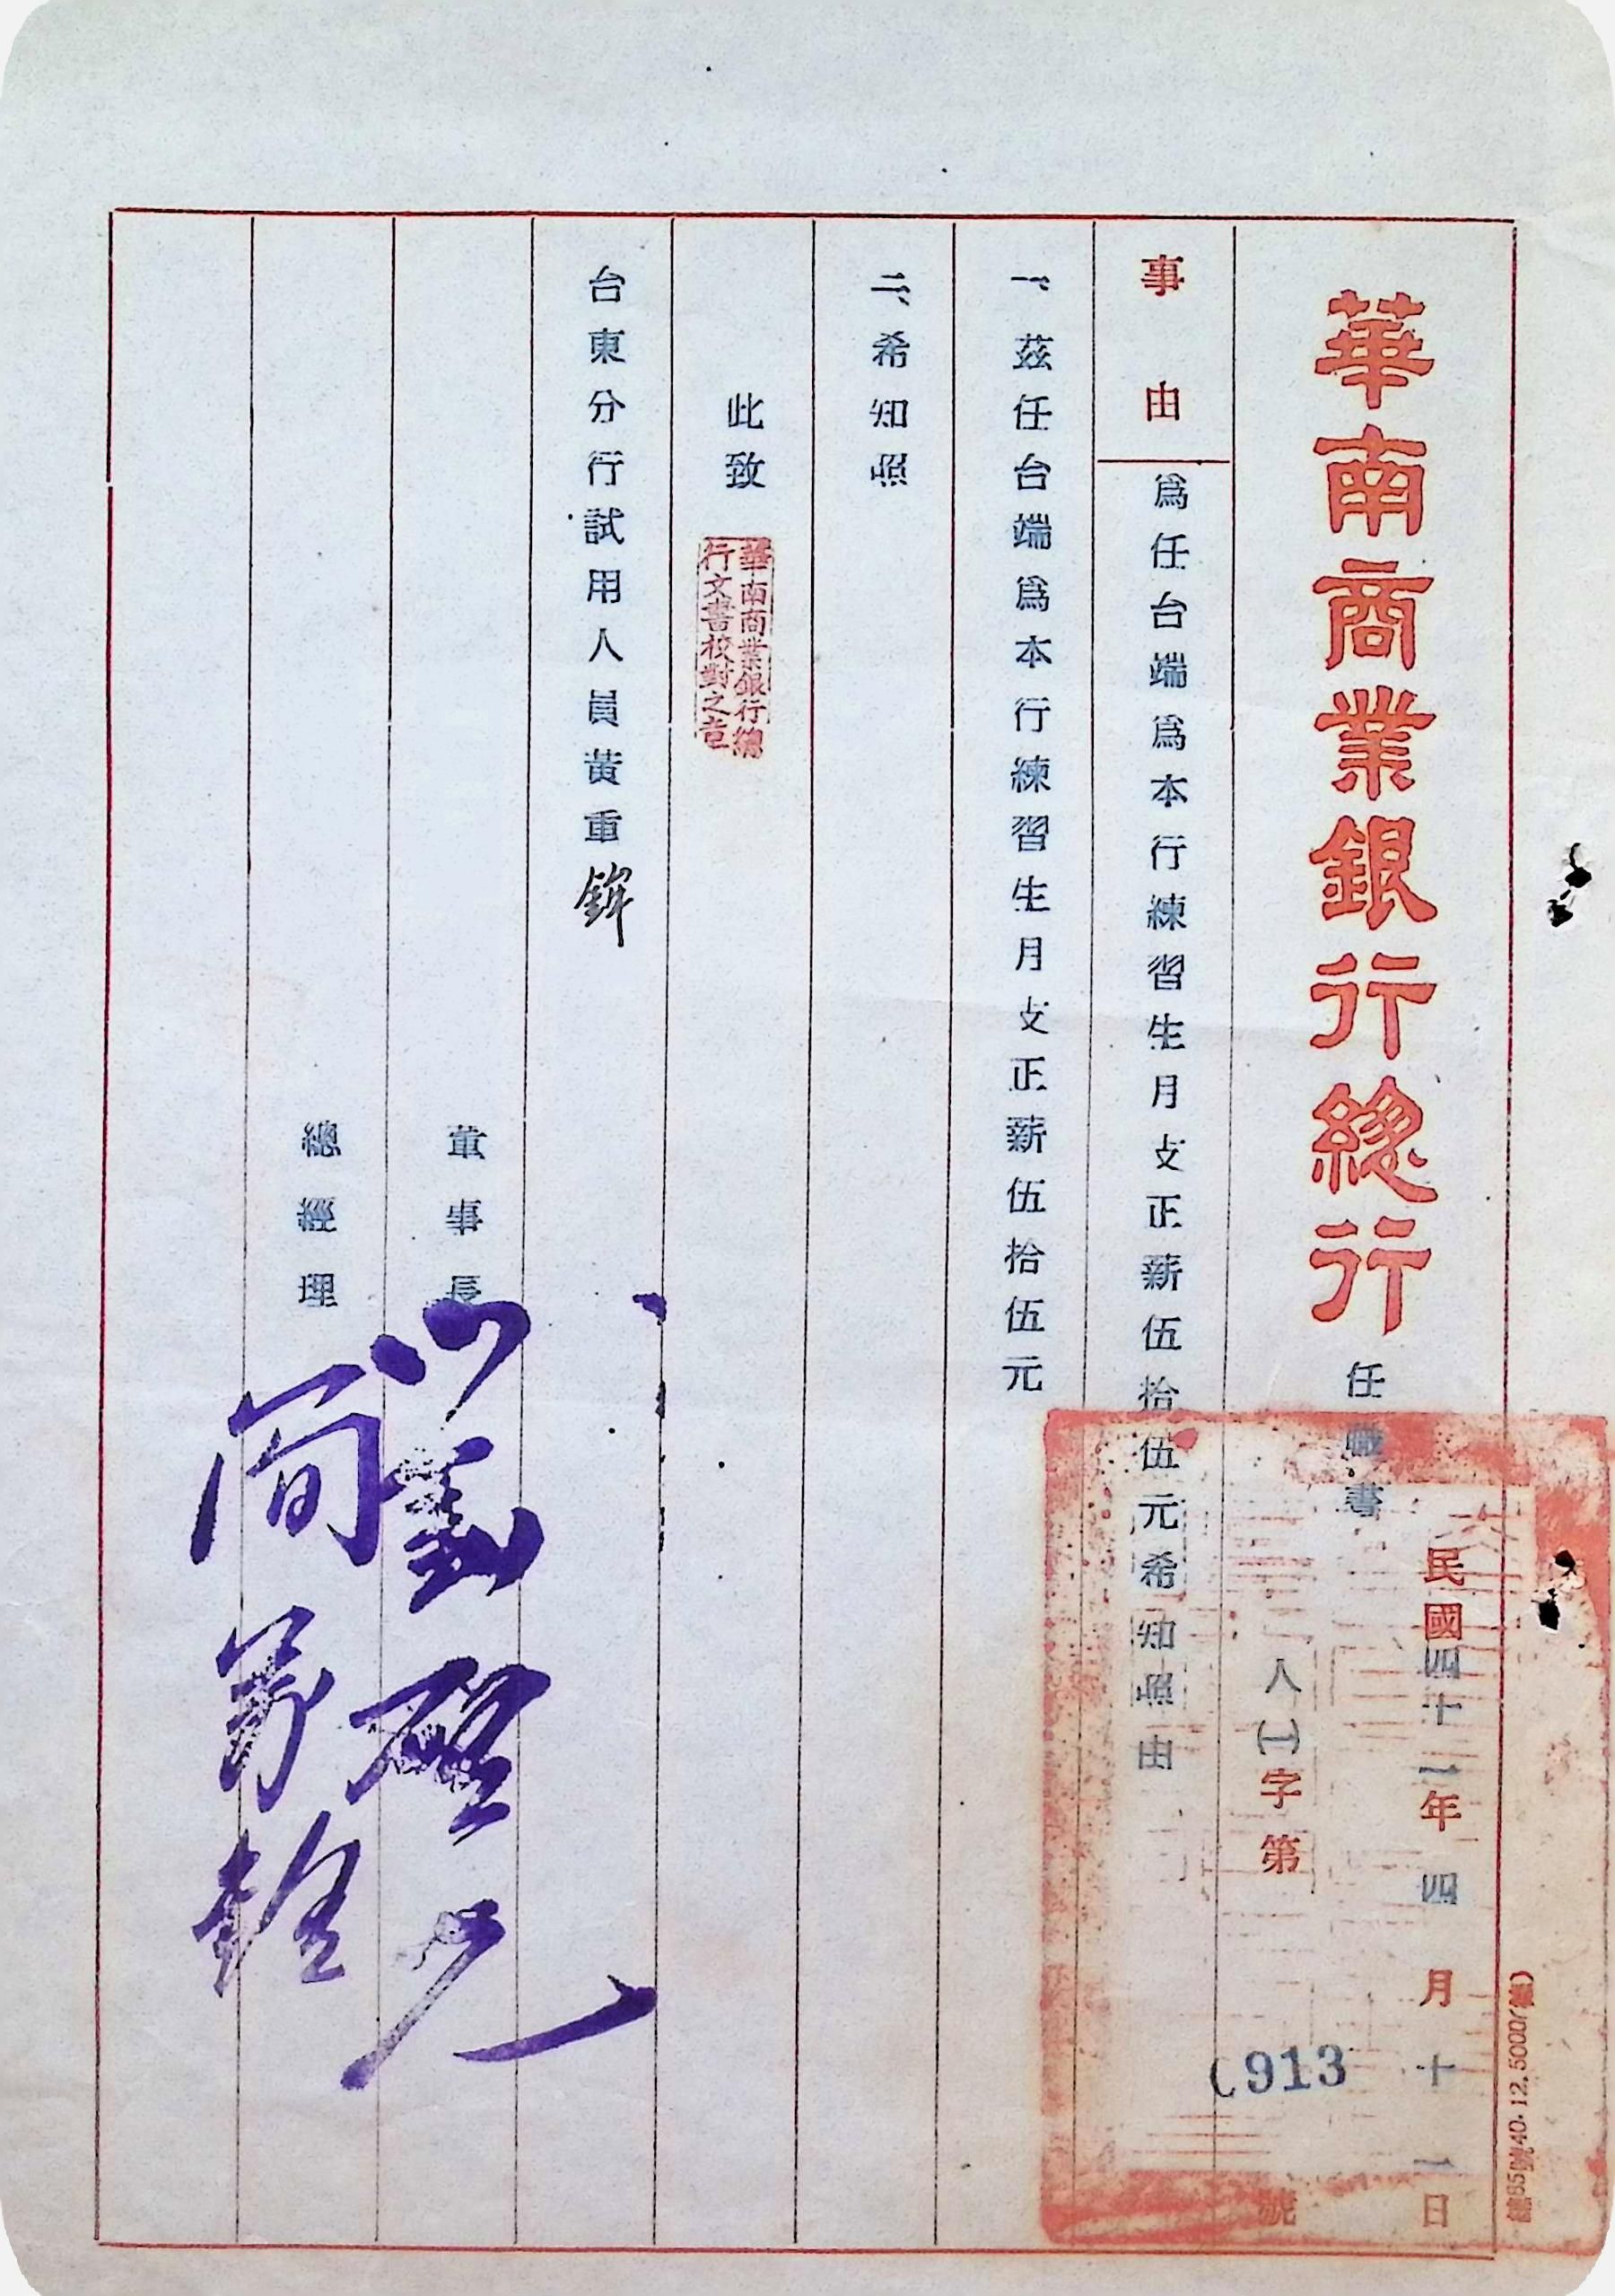 華南商業銀行總行 任職書
民國四十二年四月十一日
人㈠字第913號
事由
爲任台端爲本行練習生月支正薪伍拾伍元希知照由
一、茲任台端爲本行練習生月支正薪伍拾伍元
二、希知照
此致
華南商業銀行總
行文書校對之章
台東分行試用人員黃重鉾
董事長
劉啓光
總經理
總55號40.12.5000(德)